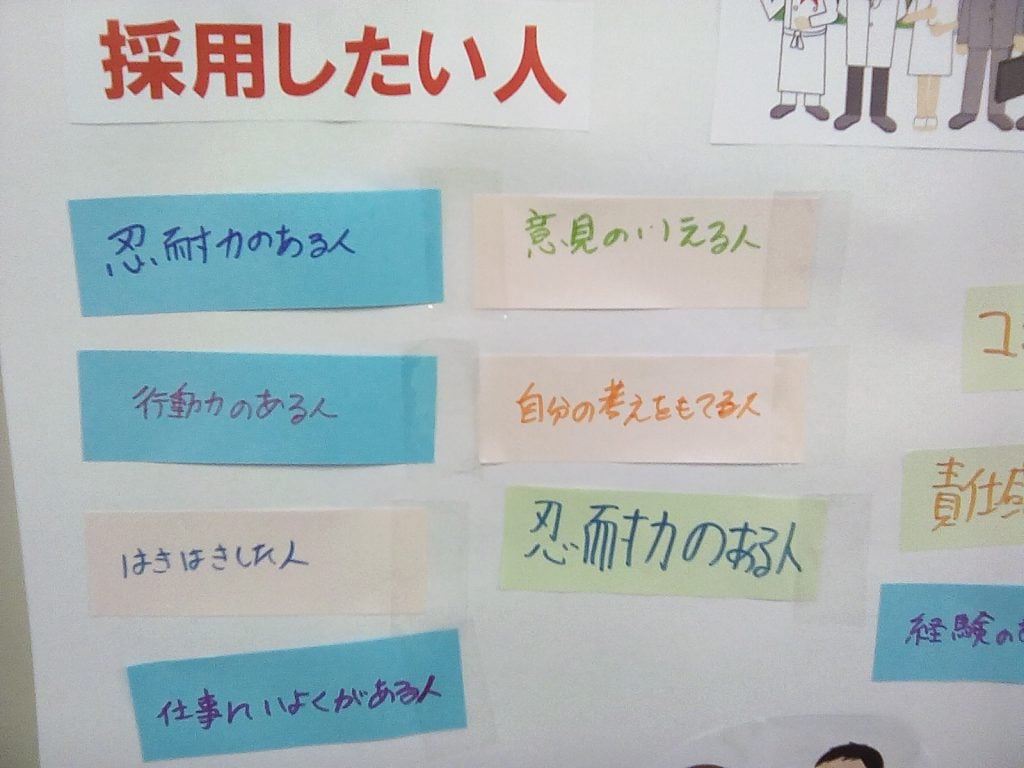 採用したい人
忍耐力のある人
意見のいえる人
行動力のある人
自分の考えをもてる人
はきはきした人
忍耐力のある人
仕事にいよくがある人
コ
責任感
経験の